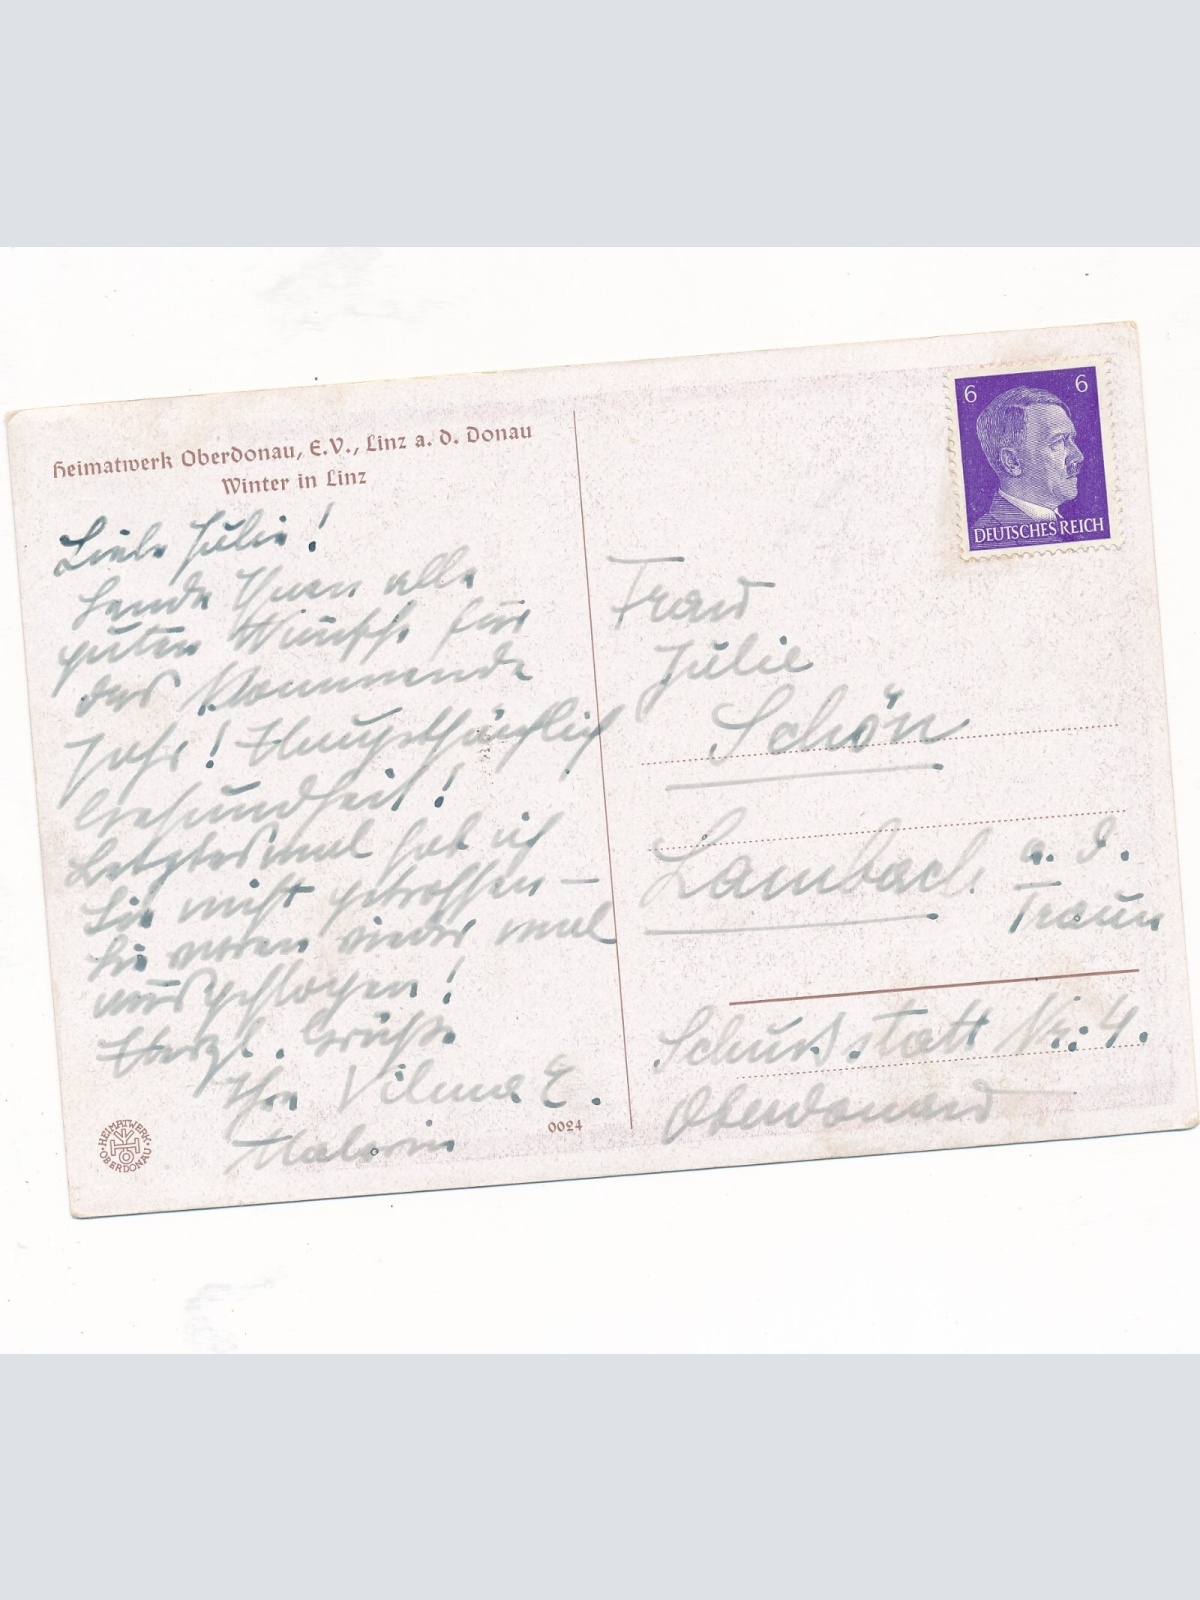 Heimatwerk Oberdonau, E.V., Linz a. d. Donau
Winter in Linz
Liebe Julie!
Sende Ihnen alle
guten Wünsche für
das kommende
Jahr! Hauptsächlich
Gesundheit!
Letztesmal hab ich
Sie nicht getroffen –
Sie waren wieder mal
ausgeflogen!
Herzl. Grüße
Ihre Vilma E.
0024
HEIMATWERK
OBERDONAU
6 6
DEUTSCHES REICH
Frau
Julie
Schön
Lambach a. d.
Traun
Nr. 4.
Oberdonau